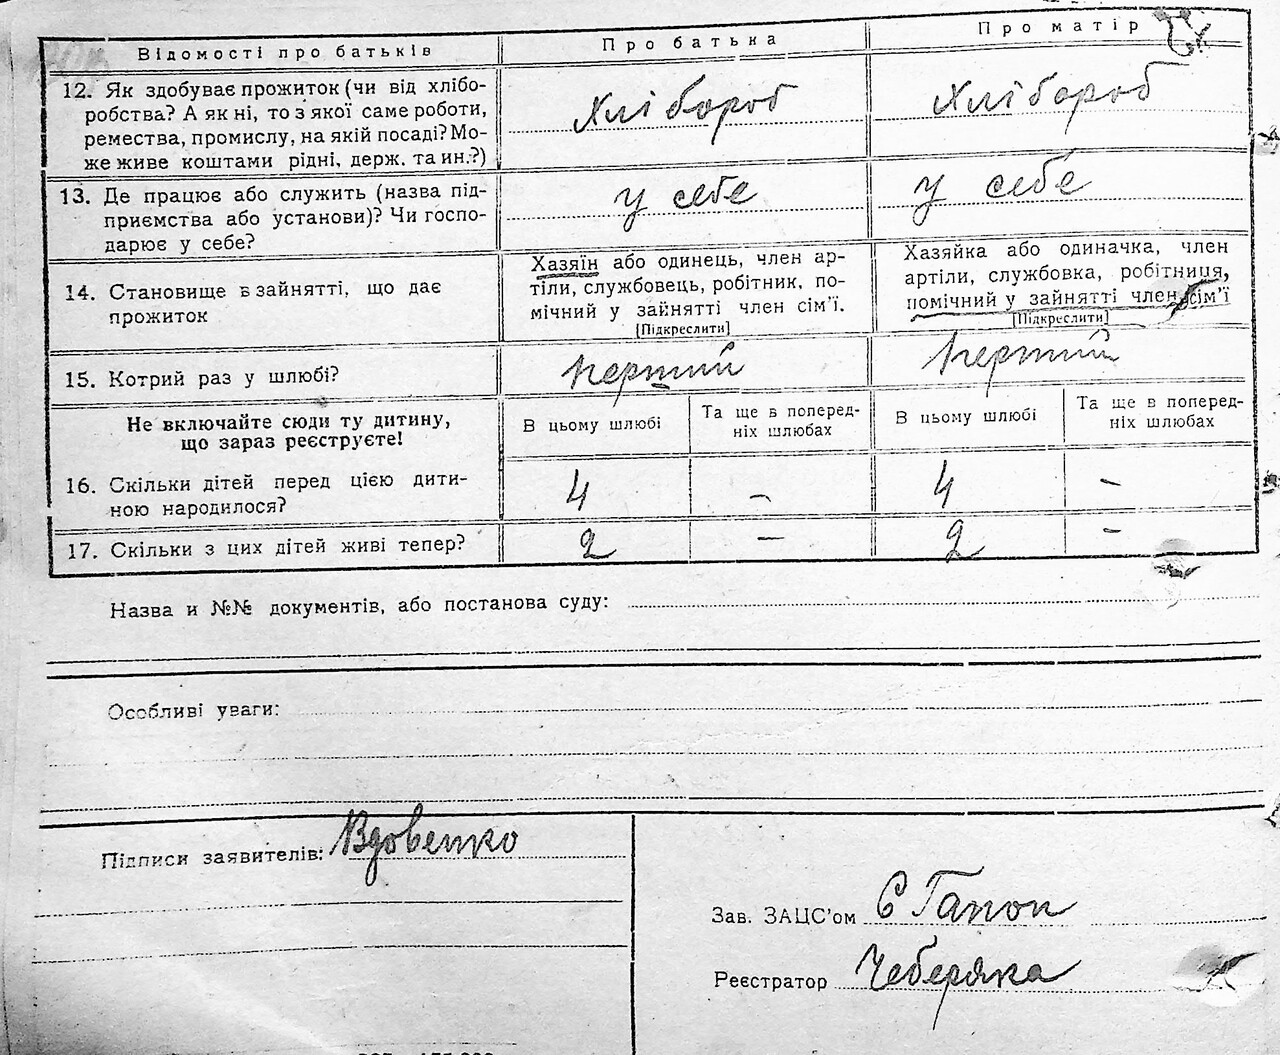 Відомості про батьків Про батька Про матір
12. Як здобуває прожиток (чи від хлібо-
робства? А як ні, то з якої саме роботи,
ремества, промислу, на якій посаді? Мо-
же живе коштами рідні, держ. та ин.?)
Хлібороб Хлібороб
13. Де працює або служить (назва під-
приємства або установи)? Чи госпо-
дарює у себе?
у себе у себе
14. Становище в зайнятті, що дає
прожиток
Хазяїн або одинець, член ар-
тіли, службовець, робітник, по-
мічний у зайнятті член сім'ї.
[Підкреслити]
Хазяйка або одиначка, член
артіли, службовка, робітниця,
помічний у зайнятті член сім'ї
[Підкреслити]
15. Котрий раз у шлюбі? перший перший
Не включайте сюди ту дитину,
що зараз реєструєте!
В цьому шлюбі
Та ще в поперед-
ніх шлюбах
В цьому шлюбі
Та ще в поперед-
ніх шлюбах
16. Скільки дітей перед цією дити-
ною народилося?
4 – 4 –
17. Скільки з цих дітей живі тепер? 2 – 2 –
Назва и №№ документів, або постанова суду:
Особливі уваги:
Підписи заявителів: Вдовенко
Зав. ЗАЦС'ом Є Гапон
Реєстратор Чеберяка